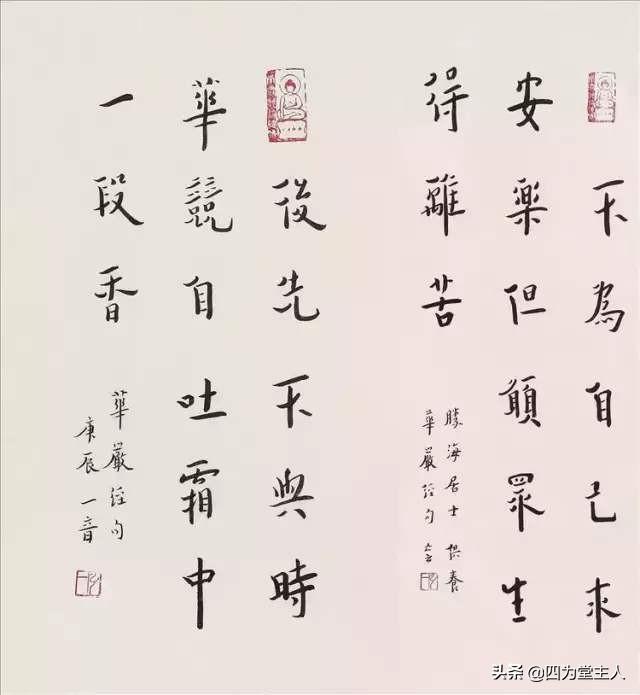 不為自己求
安樂但願眾生
得離苦
勝海居士 供養
華嚴經句
後先不與時
華競自吐霜中
一段香
華嚴經句
庚辰一音
头条 @四为堂主人